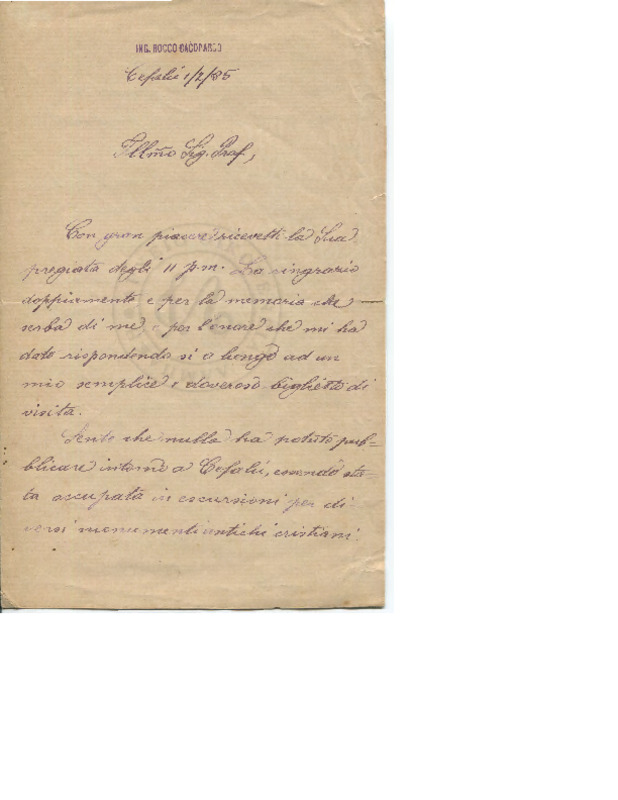 ING. ROCCO CACOPARDO
Cefalù 1/2/85
Illmo Sig. Prof,
Con gran piacere ricevetti la Sua
pregiata degli 11 p.m. La ringrazio
doppiamente e per la memoria che
serba di me e per l'onore che mi ha
dato rispondendo sì a lungo ad un
mio semplice e doveroso biglietto di
visita.
Sento che nulla ha potuto pub=
blicare intorno a Cefalù, essendo sta=
ta occupata in escursioni per di=
versi monumenti antichi cristiani.